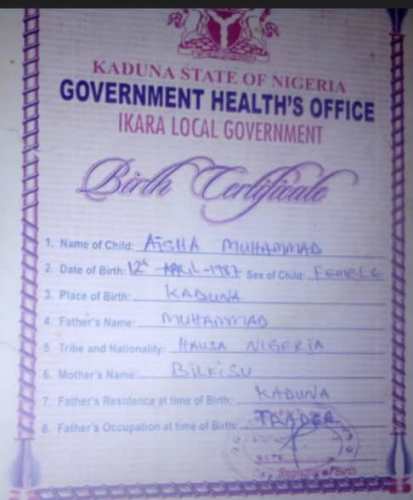 KADUNA STATE OF NIGERIA
GOVERNMENT HEALTH'S OFFICE
IKARA LOCAL GOVERNMENT
Birth Certificate
1. Name of Child: AISHA MUHAMMAD
2. Date of Birth: 12th APRIL-1987 Sex of Child: FEMELE
3. Place of Birth: KADUNA
4. Father's Name: MUHAMMAD
5. Tribe and Nationality: HAUSA NIGERIA
6. Mother's Name: BILKISU
7. Father's Residence at time of Birth: KADUNA
8. Father's Occupation at time of Birth: TRADER
of Birth